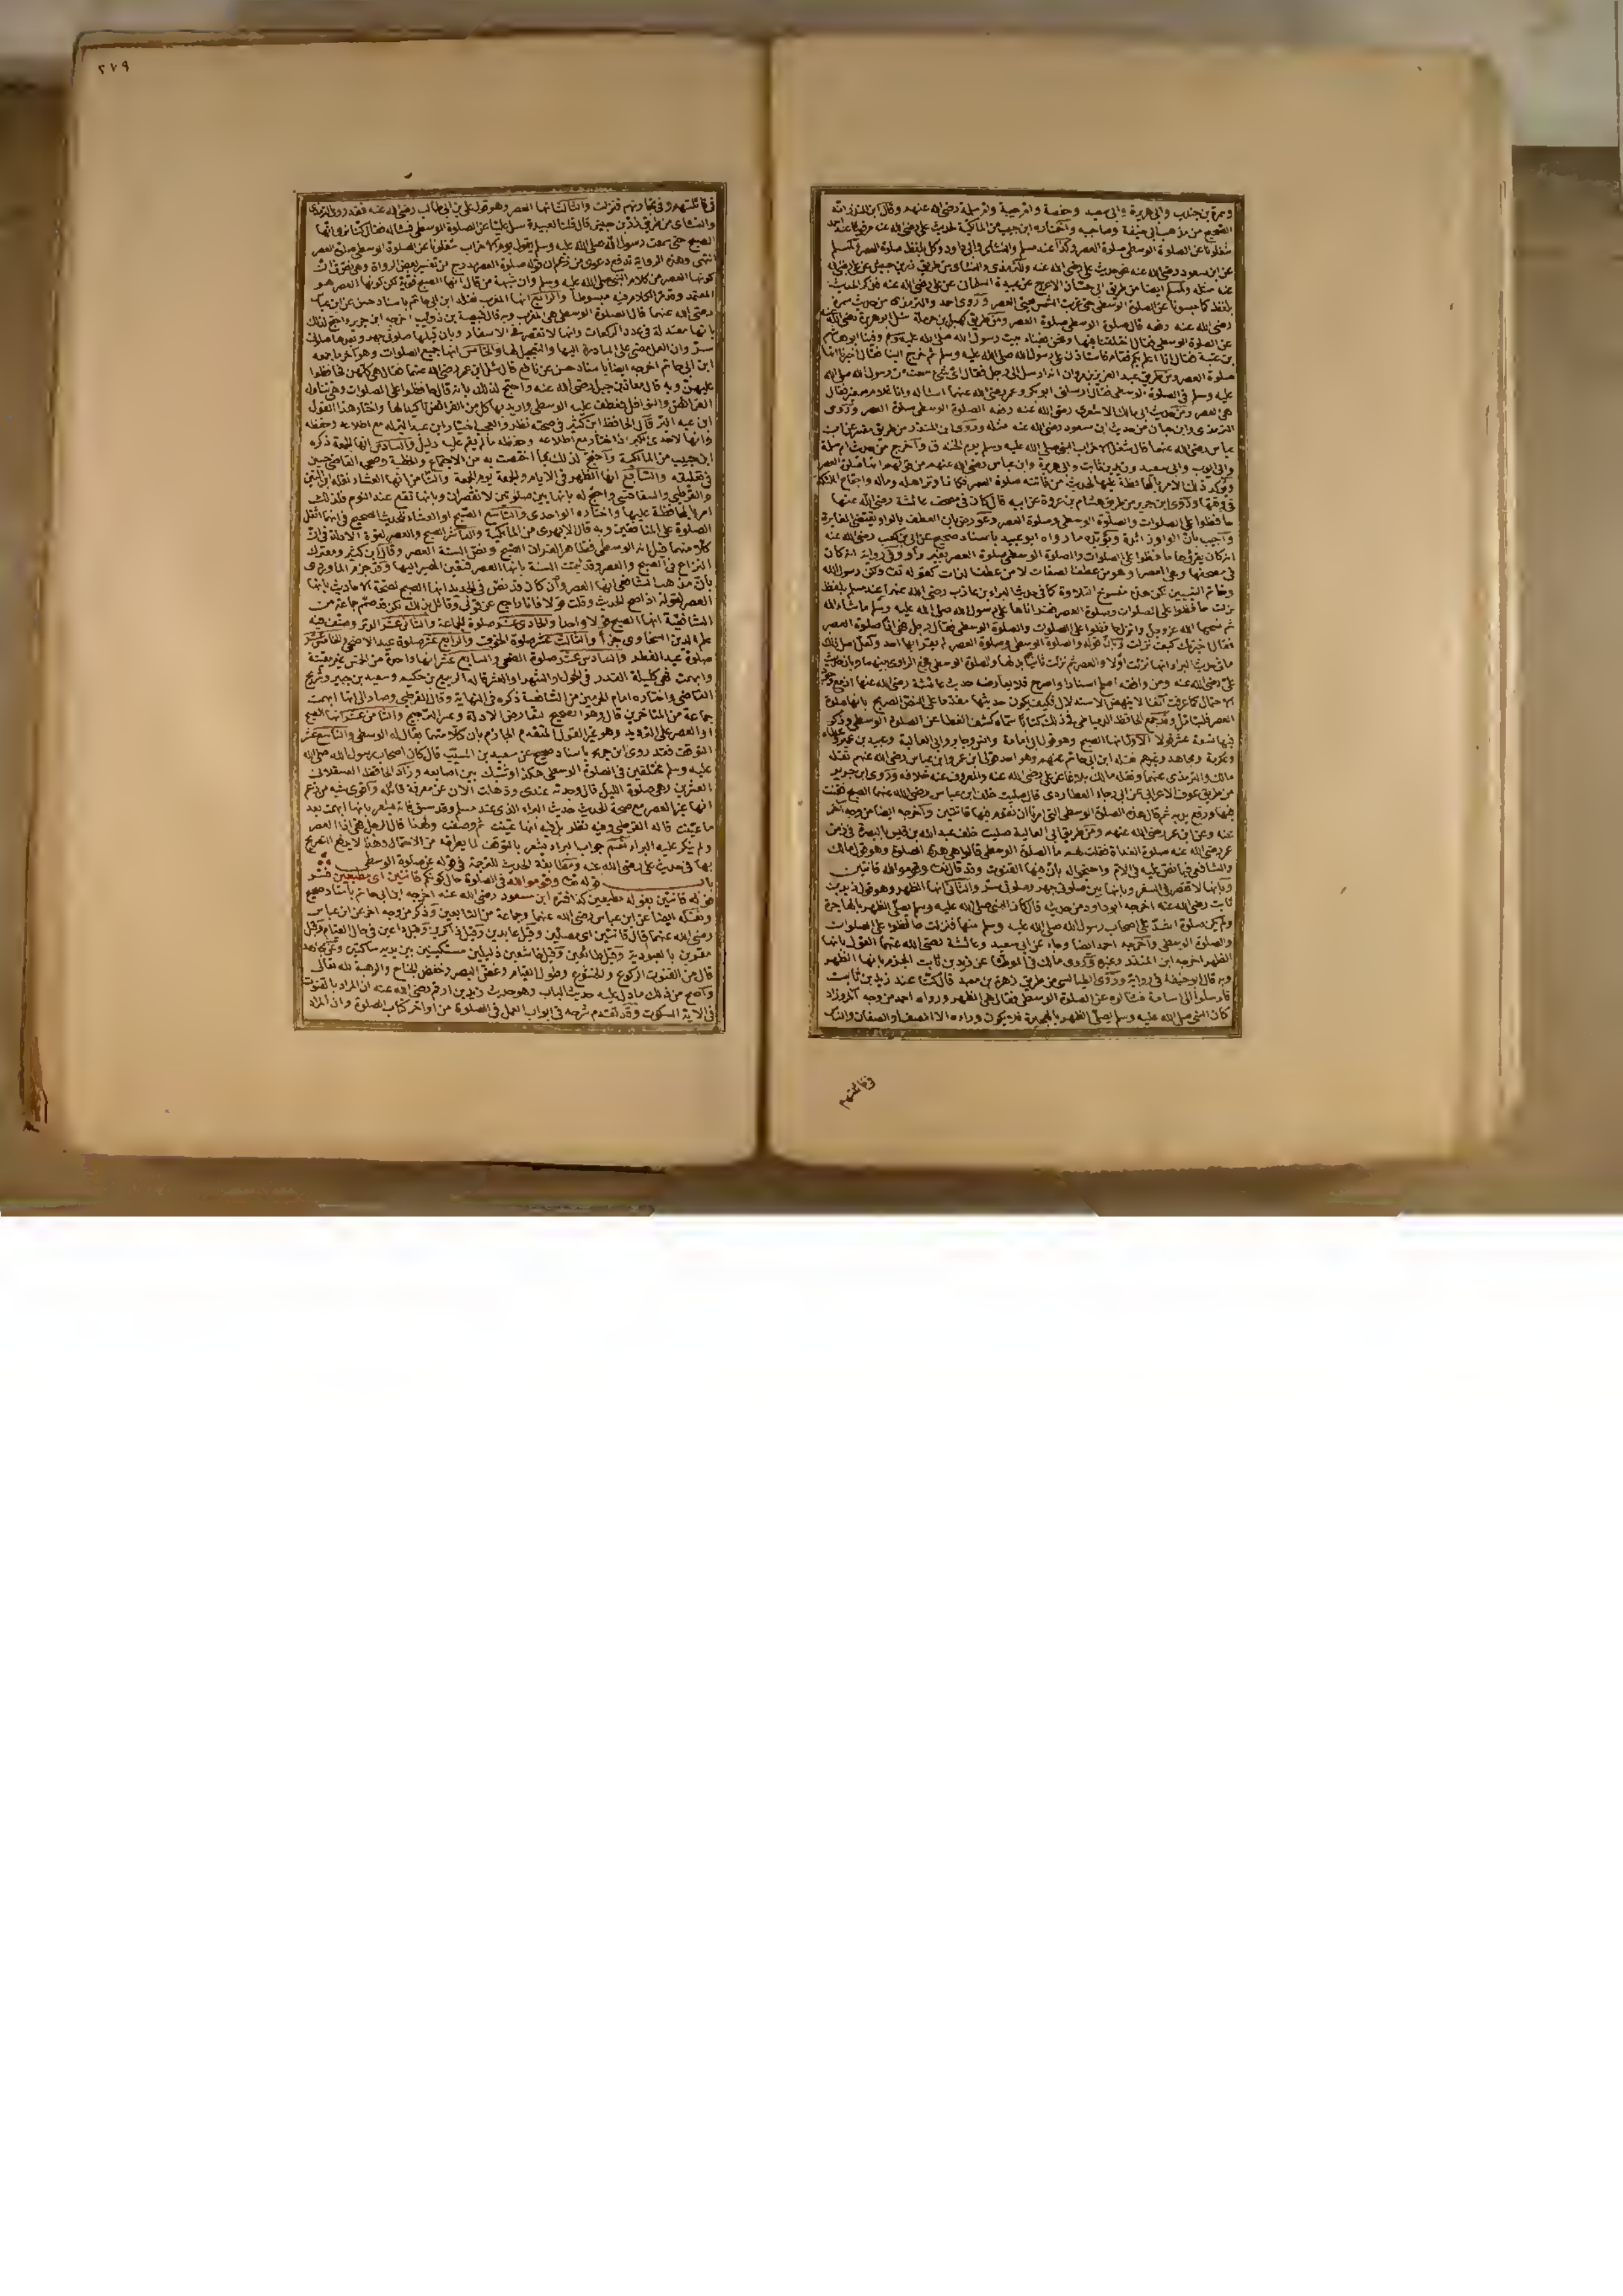 وسمرة بن جندب وابى هريرة وابى سعيد وحفصة وام حبيبة وام سلمة رضى الله عنهم وقال ابن المنذر انه
الصحيح من مذهب ابى حنيفة وصاحبيه واختاره ابن حبيب من المالكية لحديث على رضى الله عنه
شغلونا عن الصلوة الوسطى صلوة العصر وكذا عند مسلم والنسائى وابى داود وكل بلفظ صلوة العصر ولمسلم
عن ابن مسعود رضى الله عنه نحو حديث على رضى الله عنه وللترمذى والنسائى من طريق زر بن حبيش عن على رضى الله
عنه مثله ولمسلم ايضا من طريق ابى حسان الاعرج عن عبيدة السلمانى عن على رضى الله عنه فذكر الحديث
بلفظ كما حبسونا عن الصلوة الوسطى حتى غربت الشمس يعنى العصر وروى احمد والترمذى من حديث سمرة
رضى الله عنه رفعه قال صلوة الوسطى صلوة العصر ومن طريق كهيل بن حرملة سئل ابو هريرة رضى الله عنه
عن الصلوة الوسطى فقال اختلفنا فيها ونحن بفناء بيت رسول الله صلى الله عليه وسلم وفينا ابو هاشم
بن عتبة فقال انا اعلم لكم فقام فاستأذن على رسول الله صلى الله عليه وسلم ثم خرج الينا فقال اخبرنا انها
صلوة العصر ومن طريق عبد العزيز بن مروان انه ارسل الى رجل فقال اى شئ سمعت من رسول الله صلى الله
عليه وسلم فى الصلوة الوسطى فقال ارسلنى ابو بكر وعمر رضى الله عنهما اسأله وانا غلام صغير فقال
هى العصر ومن حديث ابى مالك الاشعرى رضى الله عنه رفعه الصلوة الوسطى صلوة العصر وروى
الترمذى وابن حبان من حديث ابن مسعود رضى الله عنه مثله وروى ابن المنذر من طريق مقسم عن ابن
عباس رضى الله عنهما قال شغل الاحزاب النبى صلى الله عليه وسلم يوم الخندق واخرج من حديث ام سلمة
وابى ايوب وابى سعيد وزيد بن ثابت وابى هريرة وابن عباس رضى الله عنهم من قولهم انها صلوة العصر
ويؤكد ذلك الامر بالمحافظة عليها لحديث من فاتته صلوة العصر فكانما وتر اهله وماله واجتماع الملائكة
فى وقتها وروى ابن جرير من طريق هشام بن عروة عن ابيه قال كان فى مصحف عائشة رضى الله عنها
حافظوا على الصلوات والصلوة الوسطى وصلوة العصر وعورض بان العطف بالواو يقتضى المغايرة
واجيب بان الواو زائدة ويؤيده ما رواه ابو عبيد باسناد صحيح عن ابى بن كعب رضى الله عنه
انه كان يقرؤها حافظوا على الصلوات والصلوة الوسطى صلوة العصر بغير واو
فى مصحفها وهى العصر او هو من عطف الصفات لا من عطف الذوات كقوله تعالى ولكن رسول الله
وخاتم النبيين لكن هذه منسوخ التلاوة كما فى حديث البراء بن عازب رضى الله عنهما عند مسلم بلفظ
نزلت حافظوا على الصلوات وصلوة العصر فقرأناها على رسول الله صلى الله عليه وسلم ما شاء الله
ثم نسخها الله عز وجل وانزل حافظوا على الصلوات والصلوة الوسطى فقال رجل فهى اذا صلوة العصر
فقال اخبرتك كيف نزلت
على رضى الله عنه ومن وافقه اصح اسنادا واصرح فلا يعارضه حديث عائشة رضى الله عنها
العصر
فيها تسعة عشر قولا الاول انها الصبح وهو قول ابى امامة وانس وجابر وابى العالية وعبيد بن عمير وعطاء
وعكرمة ومجاهد وغيرهم نقله ابن ابى حاتم عنهم وهو احد قولى ابن عمر وابن عباس رضى الله عنهم نقله
مالك والترمذى عنهما ونقله مالك بلاغا عن على رضى الله عنه والمعروف عنه خلافه وروى ابن جرير
من طريق عوف الاعرابى عن ابى رجاء العطاردى قال صليت خلف ابن عباس رضى الله عنهما الصبح فقنت
فيها ورفع يديه ثم قال هذه الصلوة الوسطى التى امرنا ان نقوم فيها قانتين واخرجه ايضا من وجه آخر
عنه وعن ابن عمر رضى الله عنهم ومن طريق ابى العالية صليت خلف عبد الله بن قيس بالبصرة فى زمن
عمر رضى الله عنه صلوة الغداة فقلت لهم ما الصلوة الوسطى قالوا هى هذه الصلوة وهو قول مالك
والشافعى فيما نص عليه فى الام واحتجوا له بان فيها القنوت وقد قال تعالى وقوموا لله قانتين
وبانها لا تقصر فى السفر وبانها بين صلوتى جهر وصلوتى سر والثانى انها الظهر وهو قول زيد بن
ثابت رضى الله عنه اخرجه ابو داود من حديثه قال كان النبى صلى الله عليه وسلم يصلى الظهر بالهاجرة
ولم يكن صلوة اشد على اصحاب رسول الله صلى الله عليه وسلم منها فنزلت حافظوا على الصلوات
والصلوة الوسطى واخرجه احمد ايضا وجاء عن ابى سعيد وعائشة رضى الله عنهما القول بانها
الظهر اخرجه ابن المنذر وغيره وروى مالك فى الموطأ عن زيد بن ثابت الجزم بانها الظهر
وبه قال ابو حنيفة فى رواية وروى الطيالسى من طريق زهرة بن معبد قال كنا عند زيد بن ثابت
فارسلوا الى اسامة فسألوه عن الصلوة الوسطى فقال هى الظهر ورواه احمد من وجه آخر وزاد
كان النبى صلى الله عليه وسلم يصلى الظهر بالهجيرة فلا يكون وراءه الا الصف او الصفان والناس
فى قائلتهم
٢٧٩
فى قائلتهم وفى تجارتهم فنزلت والثالث انها العصر وهو قول على بن ابى طالب رضى الله عنه فقد روى الترمذى
والنسائى من طريق زر بن حبيش قال قلنا لعبيدة سل عليا عن الصلوة الوسطى فسأله فقال كنا نرى انها
الصبح حتى سمعت رسول الله صلى الله عليه وسلم يقول يوم الاحزاب شغلونا عن الصلوة الوسطى صلوة العصر
انتهى وهذه الرواية تدفع دعوى من زعم ان قوله صلوة العصر مدرج من تفسير بعض الرواة وهى نص فى ان
كونها العصر من كلام النبى صلى الله عليه وسلم وان شبهة من قال انها الصبح قوية لكن كونها العصر هو
المعتمد وقد مر الكلام فيه مبسوطا والرابع انها المغرب نقله ابن ابى حاتم باسناد حسن عن ابن عباس
رضى الله عنهما قال الصلوة الوسطى هى المغرب وبه قال قبيصة بن ذؤيب اخرجه ابن جرير واحتج لذلك
بانها معتدلة فى عدد الركعات وانها لا تقصر فى الاسفار وبان قبلها صلوتى جهر
سر وان العمل مضى على المبادرة اليها والتعجيل لها والخامس انها جميع الصلوات وهو آخر ما جمعه
ابن ابى حاتم اخرجه ايضا باسناد حسن عن نافع قال سئل ابن عمر رضى الله عنهما فقال هى كلهن فحافظوا
عليهن وبه قال معاذ بن جبل رضى الله عنه واحتج لذلك بان قوله حافظوا على الصلوات يتناول
الفرائض والنوافل فعطف عليه الوسطى واريد بها كل من الفرائض تأكيدا لها واختار هذا القول
ابن عبد البر قال الحافظ ابن كثير فى صحته نظر والعجب اختيار ابن عبد البر له مع اطلاعه وحفظه
وانها لاحدى الكبر اذ اختار مع اطلاعه وحفظه ما لم يقم عليه دليل والسادس انها الجمعة ذكره
ابن حبيب من المالكية واحتج لذلك بما اختصت به من الاجتماع والخطبة وصححه القاضى حسين
فى تعليقه والسابع انها الظهر فى الايام والجمعة يوم الجمعة والثامن انها العشاء نقله ابن التين
والقرطبى والسفاقسى واحتج له بانها بين صلوتين لا تقصران وبانها تقع عند النوم فلذلك
امر بالمحافظة عليها واختاره الواحدى والتاسع الصبح او العشاء للحديث الصحيح فى انهما اثقل
الصلوة على المنافقين وبه قال الابهرى من المالكية والعاشر الصبح والعصر لقوة الادلة فى ان
كلا منهما قيل انه الوسطى فظاهر القرآن الصبح ونص السنة العصر وقال ابن كثير ومعترك
النزاع فى الصبح والعصر وقد ثبتت السنة بانها العصر فتعين المصير اليها وقد جزم الماوردى
بان مذهب الشافعى انها العصر وان كان قد نص فى الجديد انها الصبح لصحة الاحاديث بانها
العصر لقوله اذا صح الحديث وقلت قولا فانا راجع عن قولى وقائل بذلك لكن قد صمم جماعة من
الشافعية انها الصبح قولا واحدا والحادى عشر صلوة الجماعة والثانى عشر الوتر وصنف فيه
علم الدين السخاوى جزأ والثالث عشر صلوة الخوف والرابع عشر صلوة عيد الاضحى والخامس عشر
صلوة عيد الفطر والسادس عشر صلوة الضحى والسابع عشر انها واحدة من الخمس غير معينة
وابهمت فهى كليلة القدر فى الحول والشهر او العشر قاله الربيع بن خثيم وسعيد بن جبير وشريح
القاضى واختاره امام الحرمين من الشافعية ذكره فى النهاية وقال القرطبى وصار الى انها ابهمت
جماعة من المتأخرين قال وهو الصحيح لتعارض الادلة وعسر الترجيح والثامن عشر انها الصبح
او العصر على الترديد وهو غير القول المتقدم الجازم بان كلا منهما يقال له الوسطى والتاسع عشر
التوقف فقد روى ابن جرير باسناد صحيح عن سعيد بن المسيب قال كان اصحاب رسول الله صلى الله
عليه وسلم مختلفين فى الصلوة الوسطى هكذا وشبك بين اصابعه وزاد الحافظ العسقلانى
العشرين وهى صلوة الليل قال وجدته عندى وذهلت الآن عن معرفة قائله واقوى شبه من زعم
انها غير العصر مع صحة الحديث حديث البراء الذى عند مسلم وقد سبق فانه يشعر بانها ابهمت بعد
ما عينت قاله القرطبى وفيه نظر بل فيه انها عينت ثم وصفت ولهذا قال الرجل فهى اذا العصر
ولم ينكر عليه البراء نعم جواب البراء يشعر بالتوقف لما يطرقه من الاحتمال وهذا لا يدفع التصريح
بها فى حديث على رضى الله عنه ومطابقة الحديث للترجمة فى قوله عن صلوة الوسطى
باب قوله تعالى وقوموا لله فى الصلوة حال كونكم قانتين اى مطيعين فسر
قوله قانتين بقوله مطيعين كذا فسره ابن مسعود رضى الله عنه اخرجه ابن ابى حاتم باسناد صحيح
ونقله ايضا عن ابن عباس رضى الله عنهما وجماعة من التابعين وذكر من وجه آخر عن ابن عباس
رضى الله عنهما قال قانتين اى مصلين وقيل عابدين وقيل ذاكرين وقيل داعين فى حال القيام وقيل
مقرين بالعبودية وقيل طائعين وقيل خاشعين ذليلين مستكينين بين يديه ساكتين وعن مجاهد
قال من القنوت الركوع والخشوع وطول القيام وغض البصر وخفض الجناح والرهبة لله تعالى
واصح من ذلك ما دل عليه حديث الباب وهو حديث زيد بن ارقم رضى الله عنه ان المراد بالقنوت
فى الآية السكوت وقد تقدم شرحه فى ابواب العمل فى الصلوة من اواخر كتاب الصلوة وان المراد